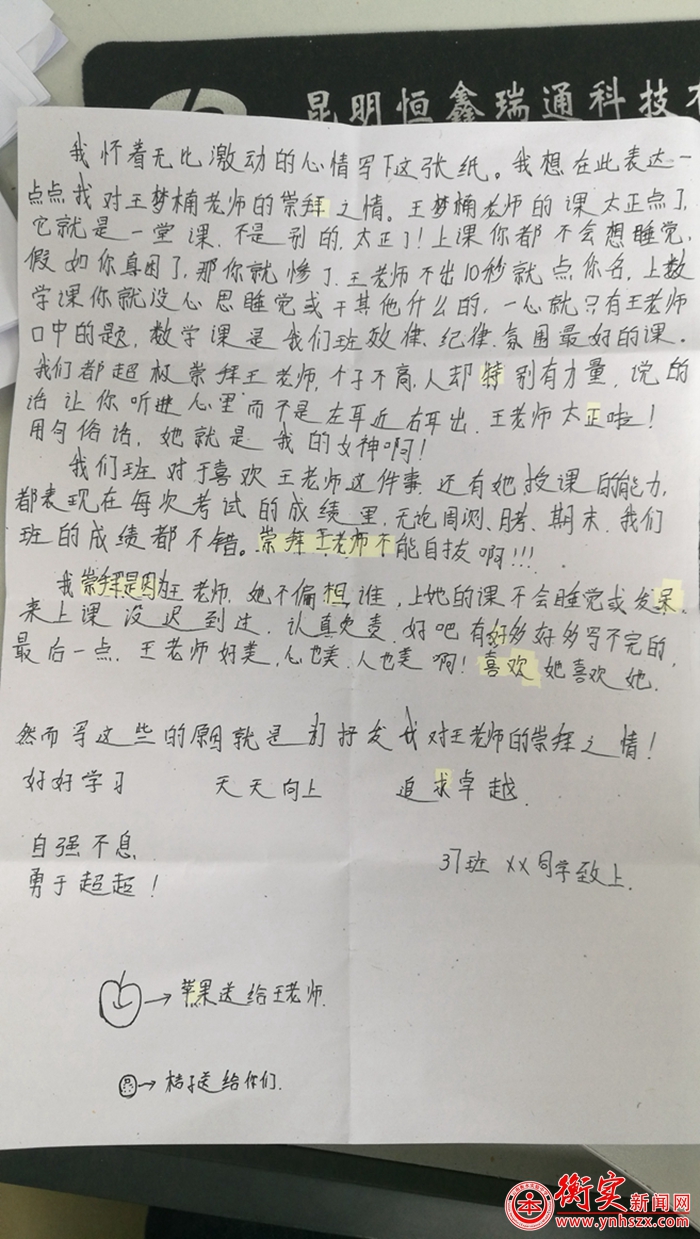 昆明恒鑫瑞通科技
我怀着无比激动的心情写下这张纸。我想在此表达一
点点我对王梦楠老师的崇拜之情。王梦楠老师的课太正点了,
它就是一堂课.不是别的.太正了!上课你都不会想睡觉,
假如你真困了,那你就惨了.王老师不出10秒就点你名.上数
学课你就没心思睡觉或干其他什么的,一心就只有王老师
口中的题.数学课是我们班效律、纪律.氛围最好的课。
我们都超极崇拜王老师,个子不高,人却特别有力量,说的
话让你听进心里而不是左耳近右耳出.王老师太正啦!
用句俗话,她就是我的女神啊!
我们班对于喜欢王老师这件事.还有她授课的能力,
都表现在每次考试的成绩里,无论周测、月考、期末.我们
班的成绩都不错。崇拜王老师不能自拔啊!!!
我崇拜是因为王老师.她不偏袒谁,上她的课不会睡觉或发呆.
来上课没迟到过.认真负责.好吧有好多好多写不完的,
最后一点.王老师好美,心也美.人也美啊!喜欢她喜欢她.
然而写这些的原因就是抒发我对王老师的崇拜之情!
好好学习 天天向上 追求卓越.
自强不息.
勇于超超!
37班 XX同学致上.
→苹果送给王老师.
→桔子送给你们.
衡实新闻网
www.ynhszx.com